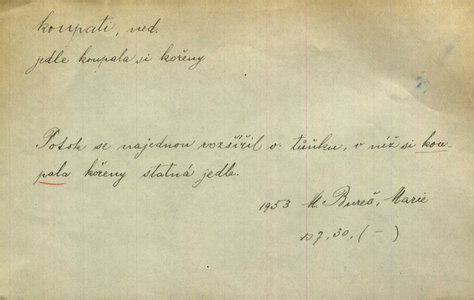 koupati, ned.
jedle koupala si kořeny
Potok se najednou rozšířil v tůňku, v níž si kou-
pala kořeny statná jedle.
1953 M. Bureš, Marie
107, 30, (-)